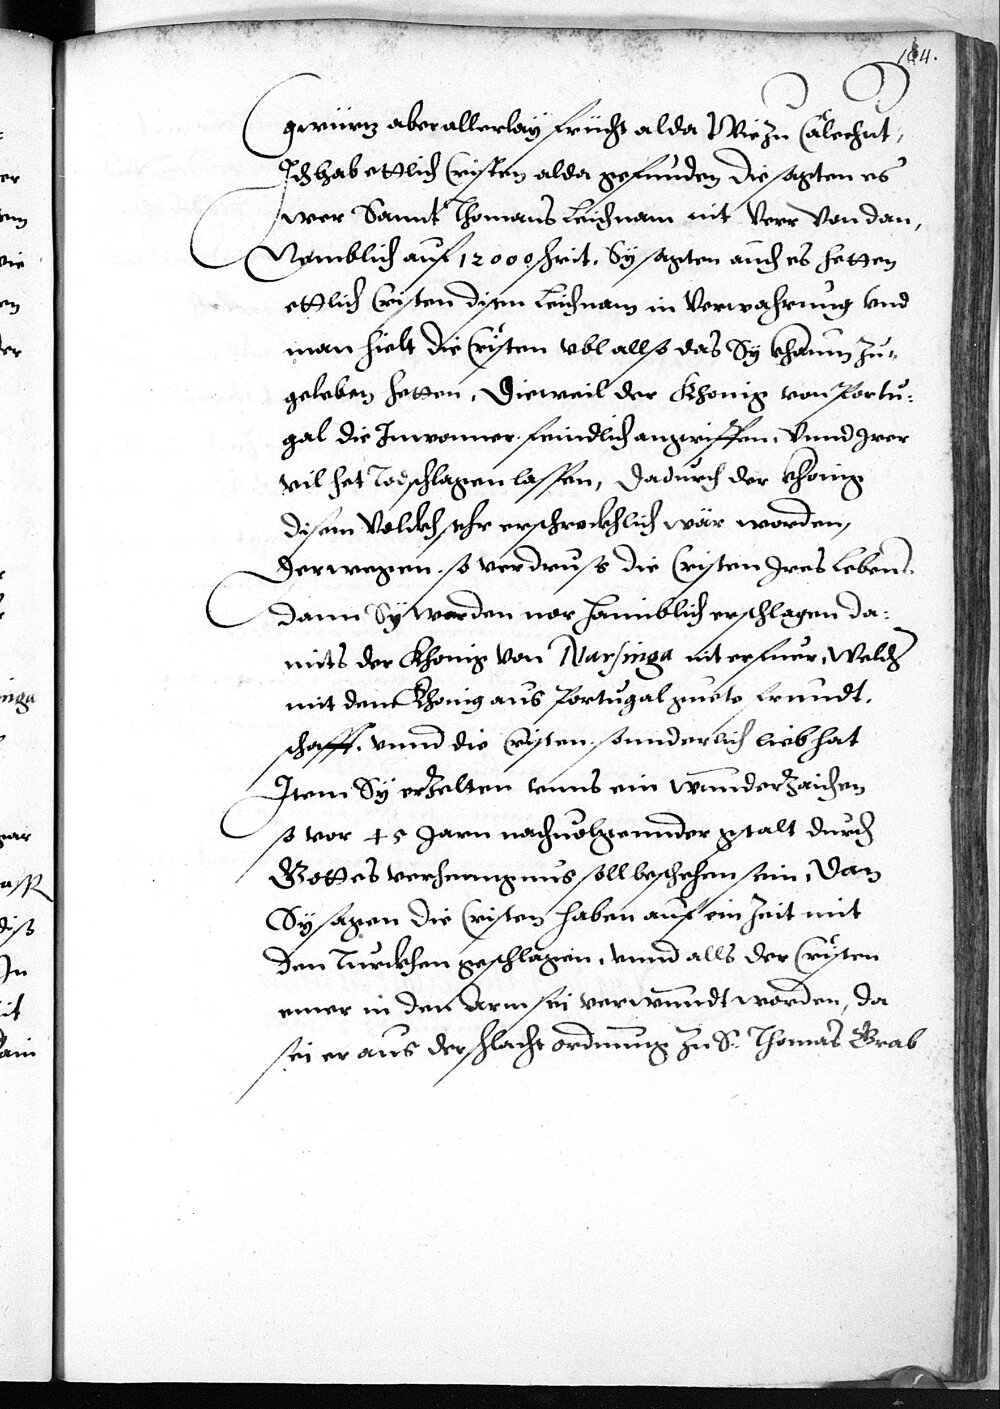 184.
gewürtz aber allerlay frücht alda Wie zu Calechut,
Ich hab ettlich Cristen alda gefunden die sagten es
wer Sannt Thomans Leichnam nit Verr von dan,
Nemblich auf 12000 schrit. Sy sagten auch es hetten
ettlich Cristen disen Leichnam in Verwahrung vnd
man hielt die Cristen vbl allso das Sy khaum zu-
geleben hetten, Dieweil der Khonig von Portu-
gal die Inwonner feindlich angriffen, Vnnd Irer
vil het Todschlagen lassen, Dadurch der khonig
disem Volckh sehr erschrockhlich wär worden,
Derwegen so verdrusß die Cristen Ires Lebens
dann Sy werden nor haimblich erschlagen da-
mits der Khonig von Narsinga nit erfuer, Welch
mit dem Khonig aus Portugal guete freundt-
schafft, vnnd die Cristen sonnderlich lieb hat
Item Sy erZelten vnns ein wunderZaichen
so vor 45 Jarn nachuolgennder gstalt durch
Gottes verhenngnus soll beschehen sein, Dan
Sy sagen die Cristen haben auf ein Zeit mit
den Turckhen geschlagen, vnnd alls der Cristen
einer in den Arm sei verwundt worden, da
sei er aus der schlacht ordnung zu S. Thomas Grab
inga